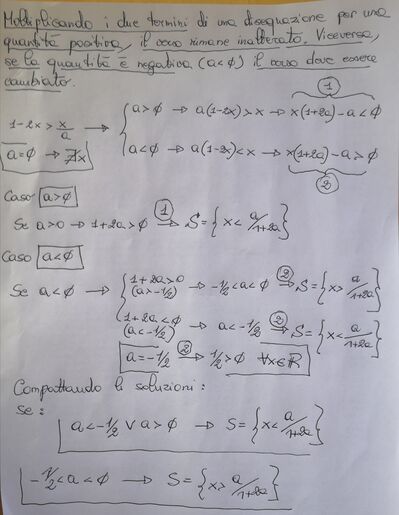 Moltiplicando i due termini di una disequazione per una
quantità positiva, il verso rimane inalterato. Viceversa,
se la quantità è negativa (a<ϕ) il verso deve essere
cambiato.
①
1-2x > x/a → { a>ϕ → a(1-2x)>x → x(1+2a)-a<ϕ
a=ϕ → ∄x
a<ϕ → a(1-2x)<x → x(1+2a)-a>ϕ
②
Caso a>ϕ
Se a>0 → 1+2a>ϕ ①→ S={x< a/1+2a}
Caso a<ϕ
Se a<ϕ → { 1+2a>0 (a>-1/2) → -1/2<a<ϕ ②→ S={x> a/1+2a}
1+2a<ϕ (a<-1/2) → a<-1/2 ②→ S={x< a/1+2a}
a=-1/2 ②→ 1/2>ϕ ∀x∈ℝ
Compattando le soluzioni:
se:
a<-1/2 ∨ a>ϕ → S={x< a/1+2a}
-1/2<a<ϕ → S={x> a/1+2a}